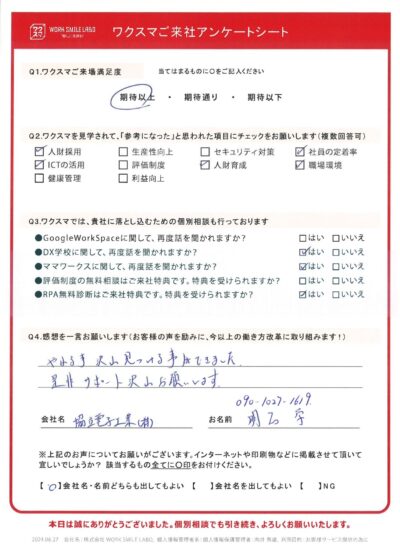 ワクスマ WORK SMILE LABO ワクスマご来社アンケートシート
Q1.ワクスマご来場満足度 当てはまるものに○をご記入ください
期待以上 ・ 期待通り ・ 期待以下
Q2.ワクスマを見学されて、「参考になった」と思われた項目にチェックをお願いします（複数回答可）
☑人財採用 □生産性向上 □セキュリティ対策 ☑社員の定着率
☑ICTの活用 □評価制度 ☑人財育成 ☑職場環境
□健康管理 □利益向上
Q3.ワクスマでは、貴社に落とし込むための個別相談も行っております
●GoogleWorkSpaceに関して、再度話を聞かれますか？ □はい □いいえ
●DX学校に関して、再度話を聞かれますか？ ☑はい □いいえ
●ママワークスに関して、再度話を聞かれますか？ ☑はい □いいえ
●評価制度の無料相談はご来社特典です。特典を受けられますか？ □はい □いいえ
●RPA無料診断はご来社特典です。特典を受けられますか？ ☑はい □いいえ
Q4.感想を一言お願いします（お客様の声を励みに、今以上の働き方改革に取り組みます！）
やれる事 沢山見つける事ができました。
是非 サポート沢山お願いします。
090-1027-1619
会社名 協立電子工業(株) お名前 明石 学
※上記のお声についてお願いがございます。インターネットや印刷物などに掲載させて頂いて
宜しいでしょうか？ 該当するもの全てに○印をお付けください。
【○】会社名・名前どちらも出してもよい 【 】会社名のみ出してもよい 【 】NG
本日は誠にありがとうございました。個別相談でも引き続き、よろしくお願いいたします。